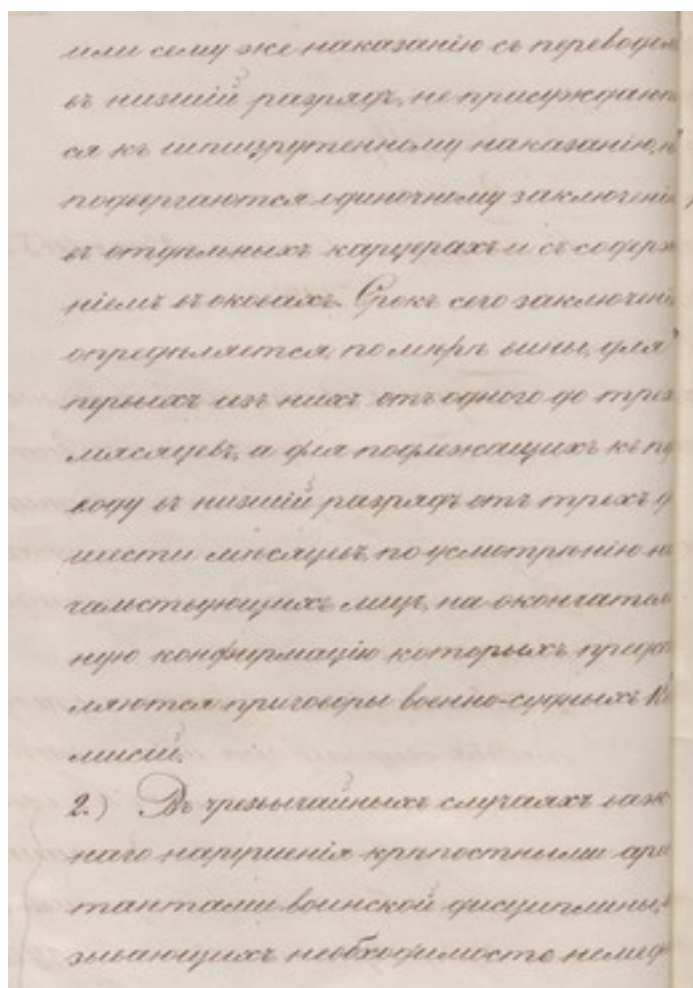 или сему же наказанію съ переводом
въ низшій разрядъ, не присуждают
ся къ шпицрутенному наказанію, н
подвергаются одиночному заключені
въ отдѣльныхъ карцерахъ и съ содерж
ніемъ въ оковахъ. Срокъ сего заключені
опредѣляется, по мѣрѣ вины, для
первыхъ изъ нихъ отъ одного до трех
мѣсяцевъ, а для подлежащихъ къ пе
воду въ низшій разрядъ отъ трехъ д
шести мѣсяцевъ, по усмотрѣнію на
чальствующихъ лицъ, на окончатель
ную конфирмацію которыхъ предст
ляются приговоры военно-судныхъ Ко
мисій.
2.) Въ чрезвычайныхъ случаяхъ важ
наго нарушенія крѣпостными аре
стантами воинской дисциплины, в
зывающихъ необходимость немед